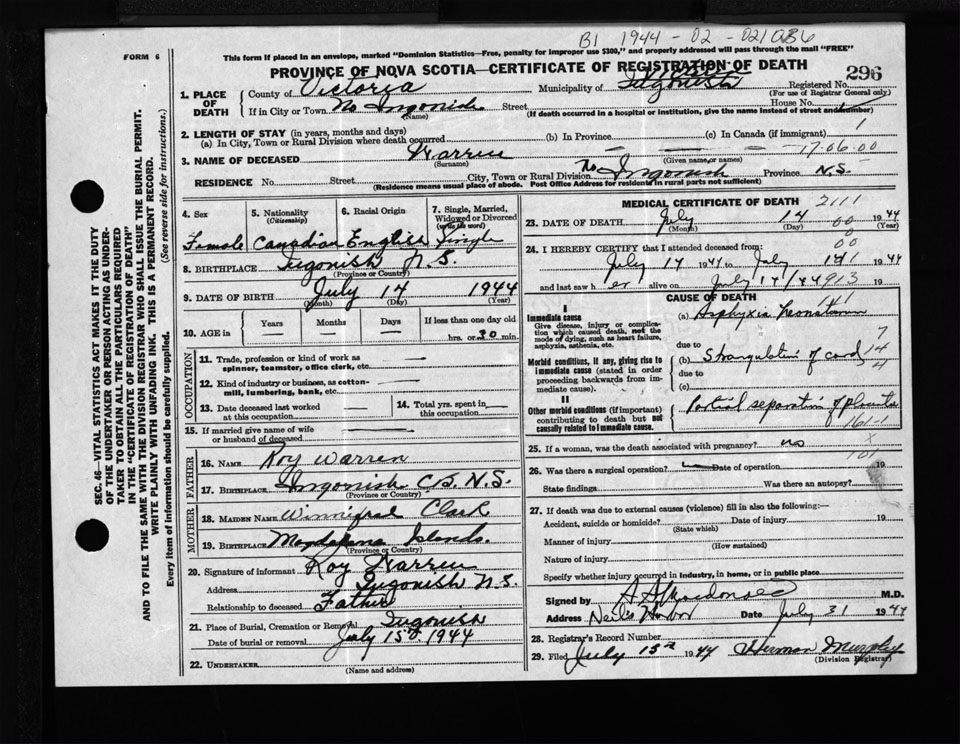 B1 1944 - 02 - 021086
FORM 6
This form if placed in an envelope, marked "Dominion Statistics—Free, penalty for improper use $300," and properly addressed will pass through the mail "FREE"
PROVINCE OF NOVA SCOTIA—CERTIFICATE OF REGISTRATION OF DEATH
296
1. PLACE OF DEATH County of Victoria Municipality of Registered No.
(For use of Registrar General only)
If in City or Town No Ingonish Street House No.
(Name) (If death occurred in a hospital or institution, give the name instead of street and number)
2. LENGTH OF STAY (in years, months and days)
(a) In City, Town or Rural Division where death occurred (b) In Province (c) In Canada (if immigrant) 1
17.06.00
3. NAME OF DECEASED Warren
(Surname) (Given name or names)
RESIDENCE No. Street City, Town or Rural Division No Ingonish Province N.S.
(Residence means usual place of abode. Post Office Address for residents in rural parts not sufficient)
4. Sex 5. Nationality (Citizenship) 6. Racial Origin 7. Single, Married, Widowed or Divorced (write the word)
Female Canadian English Single
8. BIRTHPLACE Ingonish N.S.
(Province or Country)
9. DATE OF BIRTH July 14 1944
(Month) (Day) (Year)
10. AGE in Years Months Days If less than one day old
hrs. or 30 min.
OCCUPATION
11. Trade, profession or kind of work as spinner, teamster, office clerk, etc.
12. Kind of industry or business, as cotton-mill, lumbering, bank, etc.
13. Date deceased last worked at this occupation
14. Total yrs. spent in this occupation
15. If married give name of wife or husband of deceased
FATHER
16. NAME Roy Warren
17. BIRTHPLACE Ingonish C.B. N.S.
(Province or Country)
MOTHER
18. MAIDEN NAME Winnifred Clark
19. BIRTHPLACE Magdalene Islands.
(Province or Country)
20. Signature of informant Roy Warren
Address Ingonish N.S.
Relationship to deceased Father
21. Place of Burial, Cremation or Removal Ingonish
Date of burial or removal July 15th 1944
22. UNDERTAKER
(Name and address)
MEDICAL CERTIFICATE OF DEATH 2111
23. DATE OF DEATH July 14 1944
(Month) (Day) (Year)
00
24. I HEREBY CERTIFY that I attended deceased from: 00
July 14 1944 to July 14 1944
and last saw h er alive on July 14 1944 913
CAUSE OF DEATH
I
Immediate cause
Give disease, injury or complication which caused death, not the mode of dying, such as heart failure, asphyxia, asthenia, etc.
(a) Asphyxia Neonatorum
due to
Morbid conditions, if any, giving rise to immediate cause (stated in order proceeding backwards from immediate cause).
(b) Strangulation of cord
due to
(c)
7
14
4
II
Other morbid conditions (if important) contributing to death but not causally related to immediate cause.
Partial separation of placenta
161-1
25. If a woman, was the death associated with pregnancy? no x
26. Was there a surgical operation? Date of operation 19
State findings Was there an autopsy?
27. If death was due to external causes (violence) fill in also the following:—
Accident, suicide or homicide? Date of injury 19
(State which)
Manner of injury
(How sustained)
Nature of injury
Specify whether injury occurred in industry, in home, or in public place
Signed by A A Macdonald M.D.
Address Neil's Harbor Date July 31 1944
28. Registrar's Record Number
29. Filed July 15th 1944 Herman Murphy
(Division Registrar)
SEC. 46—VITAL STATISTICS ACT MAKES IT THE DUTY
OF THE UNDERTAKER OR PERSON ACTING AS UNDER-
TAKER TO OBTAIN ALL THE PARTICULARS REQUIRED
IN THE "CERTIFICATE OF REGISTRATION OF DEATH"
AND TO FILE THE SAME WITH THE DIVISION REGISTRAR WHO SHALL ISSUE THE BURIAL PERMIT.
WRITE PLAINLY WITH UNFADING INK. THIS IS A PERMANENT RECORD.
Every item of information should be carefully supplied. (See reverse side for instructions.)